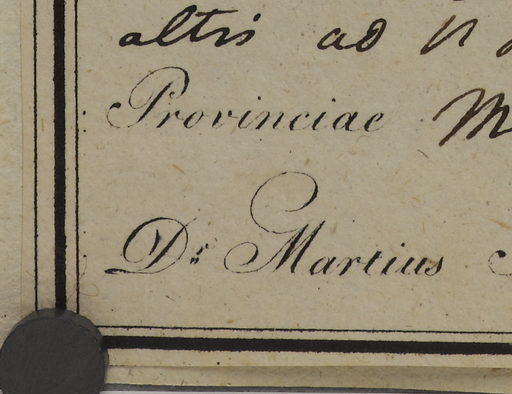 altis ad
Provinciae M
Dr. Martius